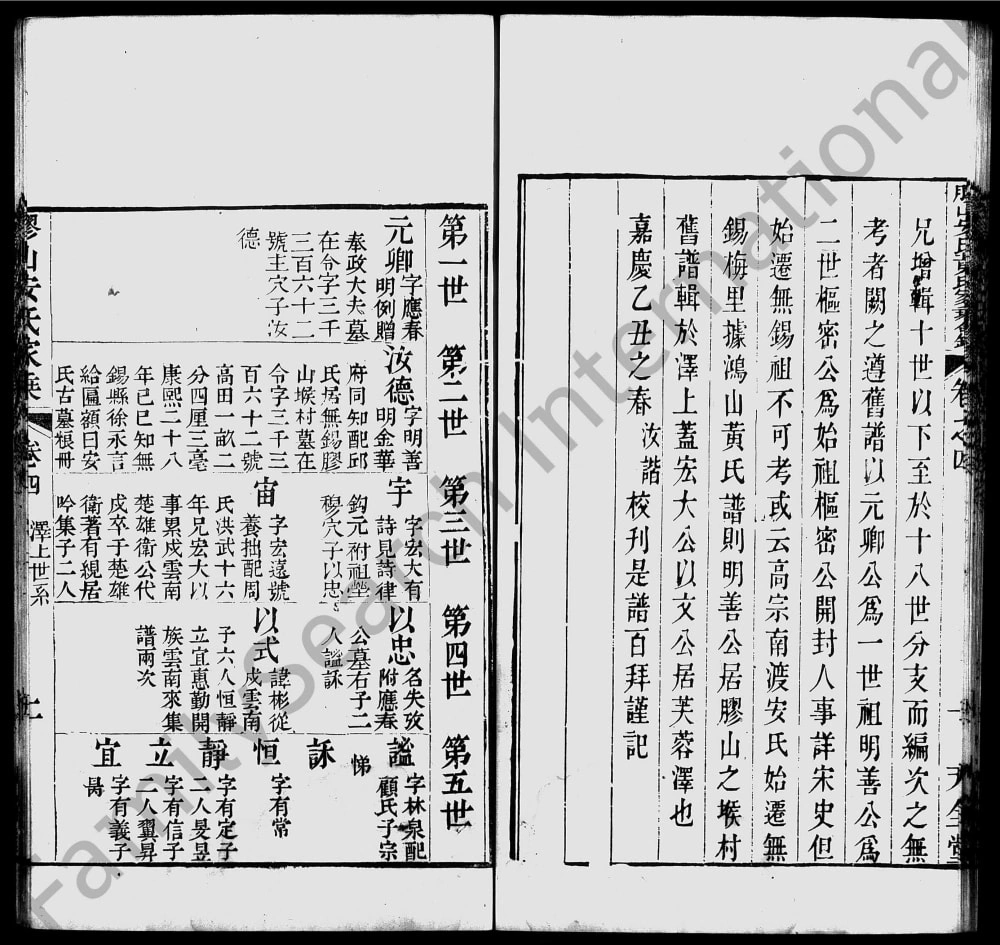 兄增輯十世以下至於十八世分支而編次之無
考者闕之遵舊譜以元卿公爲一世祖明善公爲
二世樞密公爲始祖樞密公開封人事詳宋史但
始遷無錫祖不可考或云高宗南渡安氏始遷無
錫梅里據鴻山黃氏譜則明善公居膠山之堠村
舊譜輯於澤上蓋宏大公以文公居芙蓉澤也
嘉慶乙丑之春 汝諧校刊是譜百拜謹記
天全堂
第一世
元卿
字應春
明例贈
奉政大夫墓
在令字三千
三百六十二
號主穴子汝
德
第二世
汝德
字明善
明金華
府同知配邱
氏居無錫膠
山堠村墓在
令字三千三
百六十二號
高田一畝二
分四厘三毫
康熙二十八
年己巳知無
錫縣徐永言
給匾額曰安
氏古墓糧冊
第三世
宇
字宏大有
詩見詩律
鈎元附祖塋
穆穴子以忠
宙
字宏遠號
養拙配周
氏洪武十六
年兄宏大以
事累戍雲南
楚雄衛公代
戍卒于楚雄
衛著有緄居
吟集子二人
第四世
以忠
名失攷
附應春
公墓右子二
人謐詠
以式
諱彬從
戍雲南
子六人恒靜
立宜惠勤開
族雲南來集
譜兩次
第五世
謐
字林泉配
顧氏子宗
悌
詠
恒
字有常
靜
字有定子
二人旻昱
立
字有信子
二人翼昇
宜
字有義子
昺
膠山安氏家乘
卷四
澤上世系
二